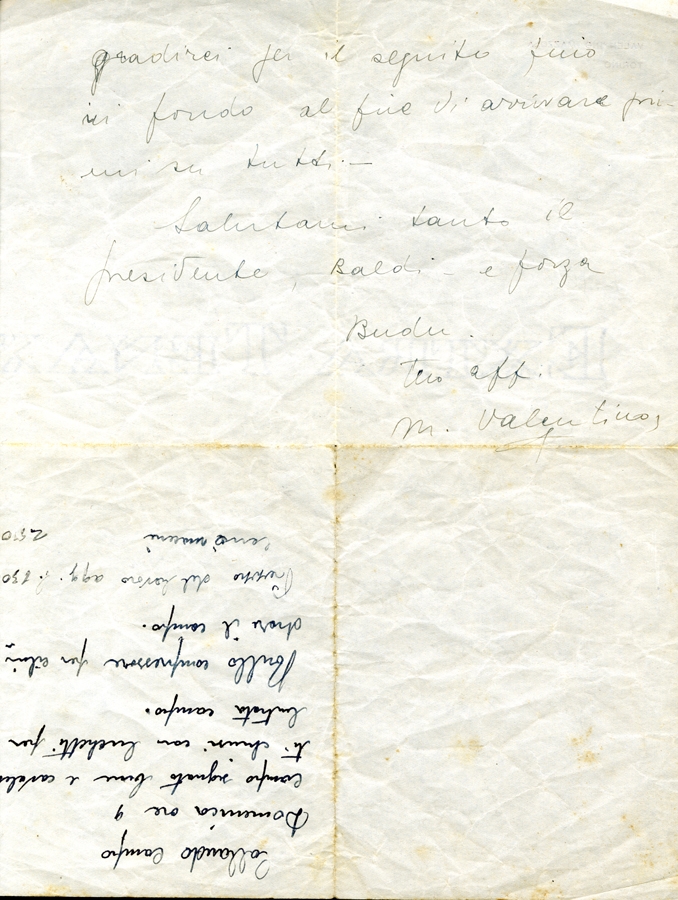 gradirei per il seguito fino
in fondo al fine di arrivare pri-
mi su tutti. —
Salutami tanto il
presidente, Baldi - e forza
Budu.
Tuo aff.
M. Valentino
Collaudo Campo
Domenica ore 9
Campo segnato bene e cartelli
ti chiusi con lucchetti per
Entrata campo.
Rullo compressore per cilin
drare il campo.
Prezzo del lavoro agg. £. 830
2500